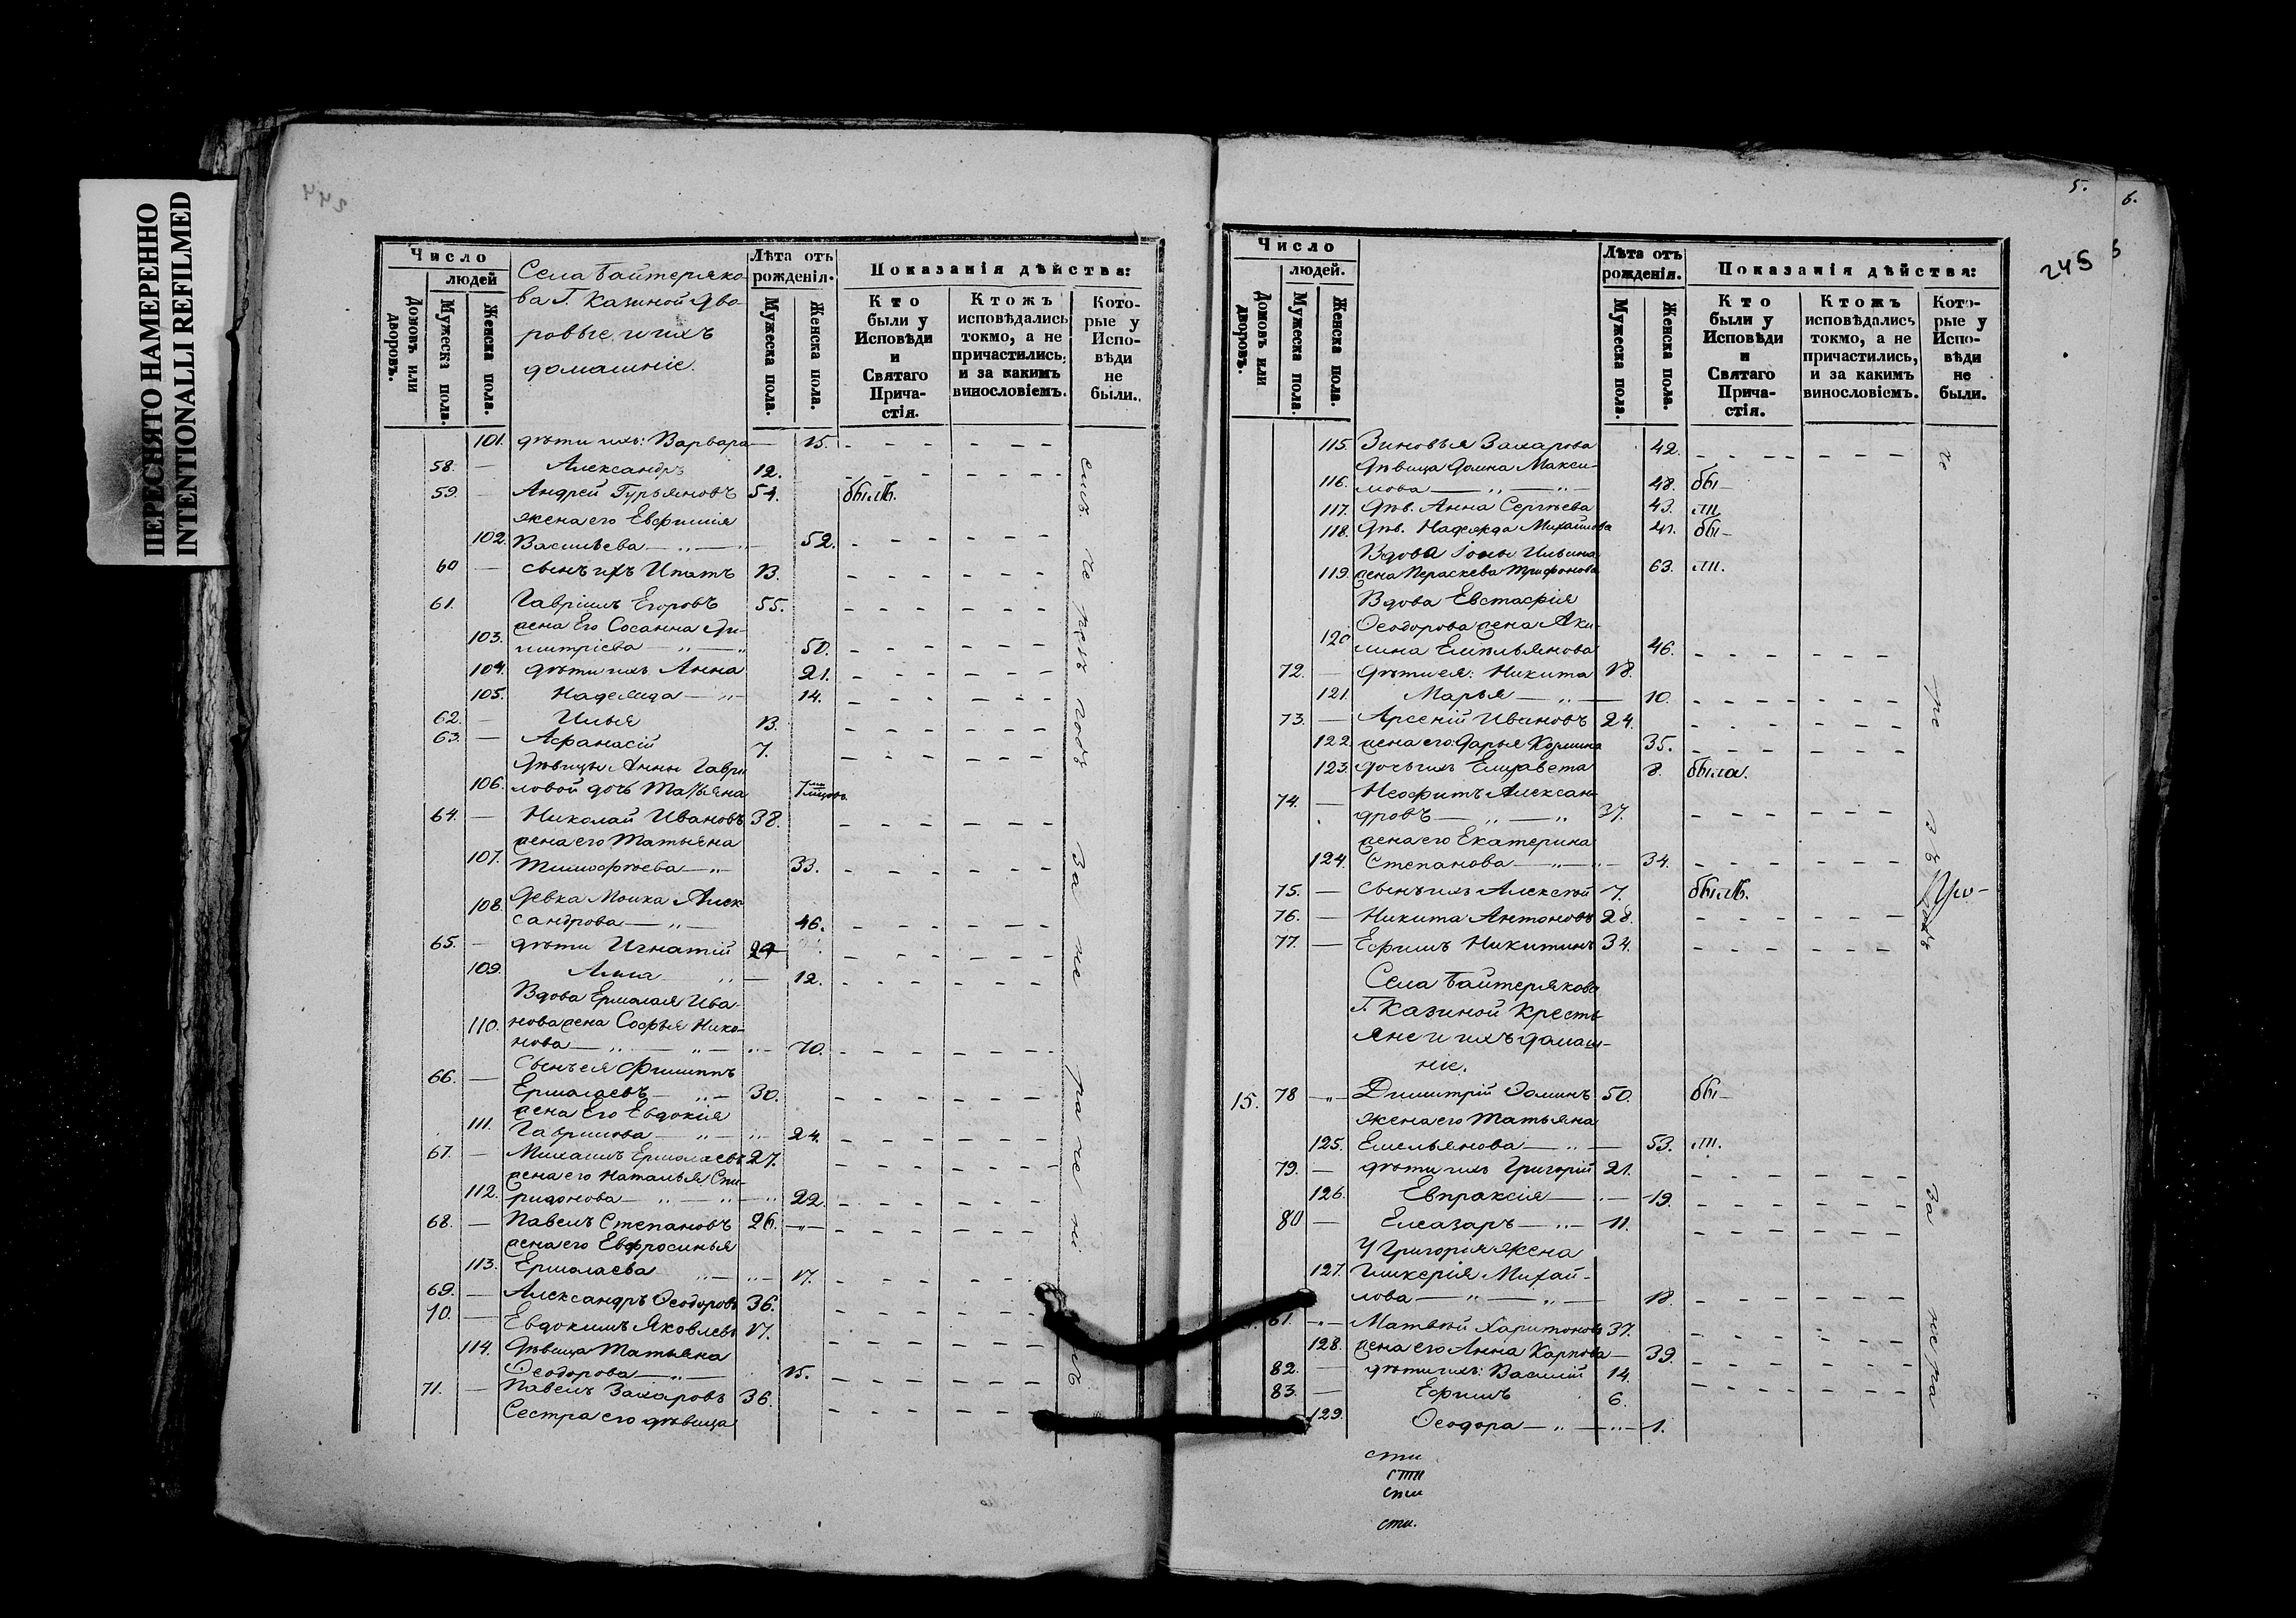 ПЕРЕСНЯТО НАМЕРЕННО
INTENTIONALLI REFILMED
244
Число
людей
Домовъ или дворовъ.
Мужеска пола.
Женска пола.
Села Байтеряко-
ва Г. Казиной дво-
ровые и ихъ
домашніе.
Лѣта отъ рожденія.
Мужеска пола.
Женска пола.
Показанія дѣйства:
Кто были у Исповѣди и Святаго Прича-стія.
Ктожъ исповѣдались токмо, а не причастились, и за какимъ винословіемъ.
Кото-рые у Испо-вѣди не были.
101. дѣти ихъ: Варвара — 15.
58. — Александръ 12.
59. — Андрей Гурьяновъ 54. былъ.
жена его Евфимія
102. Васильева — „ — 52.
60 — сынъ ихъ Ипатъ 13.
61. Гавріилъ Егоровъ 55.
жена Его Сосанна Ди-
103. митріева — „ — „ 50.
104. дѣти ихъ Анна 21.
105. Надежда — „ — 14.
62. — Илья 13.
63. — Афанасій 7.
Дѣвицы Анны Гаври
106. ловой дочь Татьяна
64. — Николай Ивановъ 38.
жена его Татьяна
107. Тимофѣева — „ 33.
108. Девка Алек
сандрова — „ — 46.
65. — дѣти Игнатій
109. Анна „ — 12.
Вдова Ермолая Ива-
110. нова жена Софья Нико-
нова — „ — „ — 70.
Сынъ ея Филиппъ
66. — Ермолаевъ — „ — 30.
жена Его Евдокія
111. Гаврилова — „ — 24.
67. — Михаилъ Ермолаевъ 27.
жена его Наталья Спи-
112. ридонова — „ — „ — 22.
68. — Павелъ Степановъ 26. — „ —
жена его Евфросинья
113. Ермолаева „ — 17.
69. — Александръ Ѳеодоровъ 36.
70. — Евдокимъ Яковлевъ 17.
114. Дѣвица Татьяна
Ѳеодорова — „ — 15.
71. — Павелъ Захаровъ 36.
Сестра его дѣвица
5.
6.
245
Число
людей.
Домовъ или дворовъ.
Мужеска пола.
Женска пола.
Лѣта отъ рожденія.
Мужеска пола.
Женска пола.
Показанія дѣйства:
Кто были у Исповѣди и Святаго Прича-стія.
Ктожъ исповѣдались токмо, а не причастились, и за какимъ винословіемъ.
Кото-рые у Испо-вѣди не были.
115. Зиновья Захарова 42.
Дѣвица Домна Макси-
116. мова — „ — „ — 48. бы-
117. Дѣв. Анна Сергѣева 43. ли
118. Дѣв. Надежда Михайлова 41. бы-
Вдова Іоны Ильина
119. жена Параскева Трифонова 63. ли.
Вдова Евстафія
Ѳеодорова жена Аку-
120 лина Емельянова 46.
72. — дѣти ея: Никита 18.
121. Марья — „ — 10.
73. — Арсеній Ивановъ 24.
122. жена его: Дарья Козмина 35.
123. дочь ихъ Елизавета 8. была.
74. — Неофитъ Алексан-
дровъ — „ — „ 37.
жена его Екатерина
124. Степанова — „ — 34.
75. — сынъ ихъ Алексѣй 7. былъ.
76. — Никита Антоновъ 28.
77. — Ефимъ Никитинъ 34.
Села Байтерякова
Г. Казиной Кресть
яне и ихъ домаш-
ніе.
15. 78 — „ — Димитрій Ѳоминъ 50. бы-
жена его Татьяна
125. Емельянова — „ — 53. ли.
79. — дѣти ихъ Григорій 21.
126. Евпраксія — „ — 19.
80 — Елеазаръ — „ — 11.
У Григорія жена
127. Гликерія Михай-
лова — „ — „ — 18.
81. — „ — Матвѣй Харитоновъ 37.
128. жена его Анна Карпова — 39.
82. — дѣти ихъ: Василій 14.
83. — Ефимъ 6.
129. Ѳеодора — „ — „ — 1.